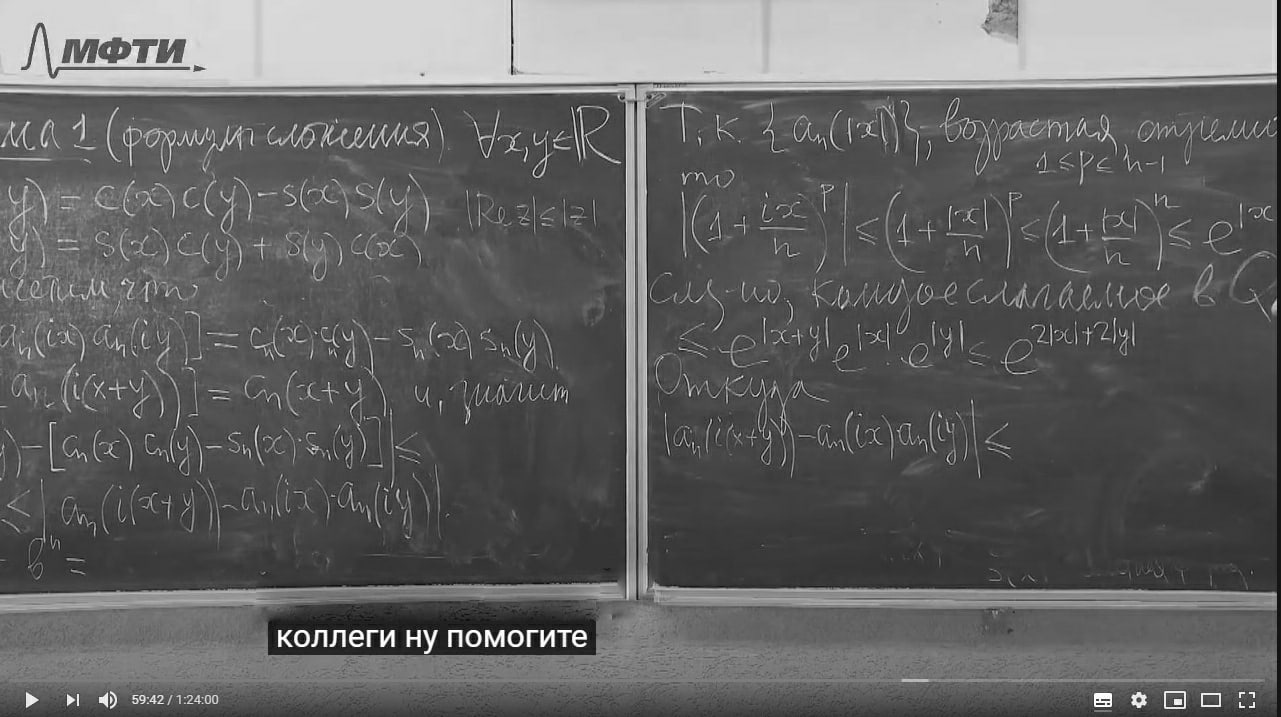 МФТИ
ма 1 (формулы сложения) ∀x,y∈ℝ
y) = c(x)c(y)−s(x)s(y) |Re z|≤|z|
y) = s(x)c(y)+s(y)c(x)
что
aₙ(ix)aₙ(iy)] = cₙ(x)·cₙ(y)−sₙ(x)sₙ(y)
aₙ(i(x+y))] = cₙ(x+y) и, значит
y)−[cₙ(x)cₙ(y)−sₙ(x)·sₙ(y)]|≤
≤|aₙ(i(x+y))−aₙ(ix)·aₙ(iy)|.
bⁿ=
Т.к. {aₙ(|x|)}, возрастая,
1≤p≤n−1
то
|(1+ix/n)^p|≤(1+|x|/n)^p≤(1+|x|/n)^n≤e^|x
сл-но, каждое слагаемое в Q
≤ e^|x+y| e^|x|·e^|y| ≤ e^(2|x|+2|y|)
Откуда
|aₙ(i(x+y))−aₙ(ix)aₙ(iy)|≤
коллеги ну помогите
59:42 / 1:24:00